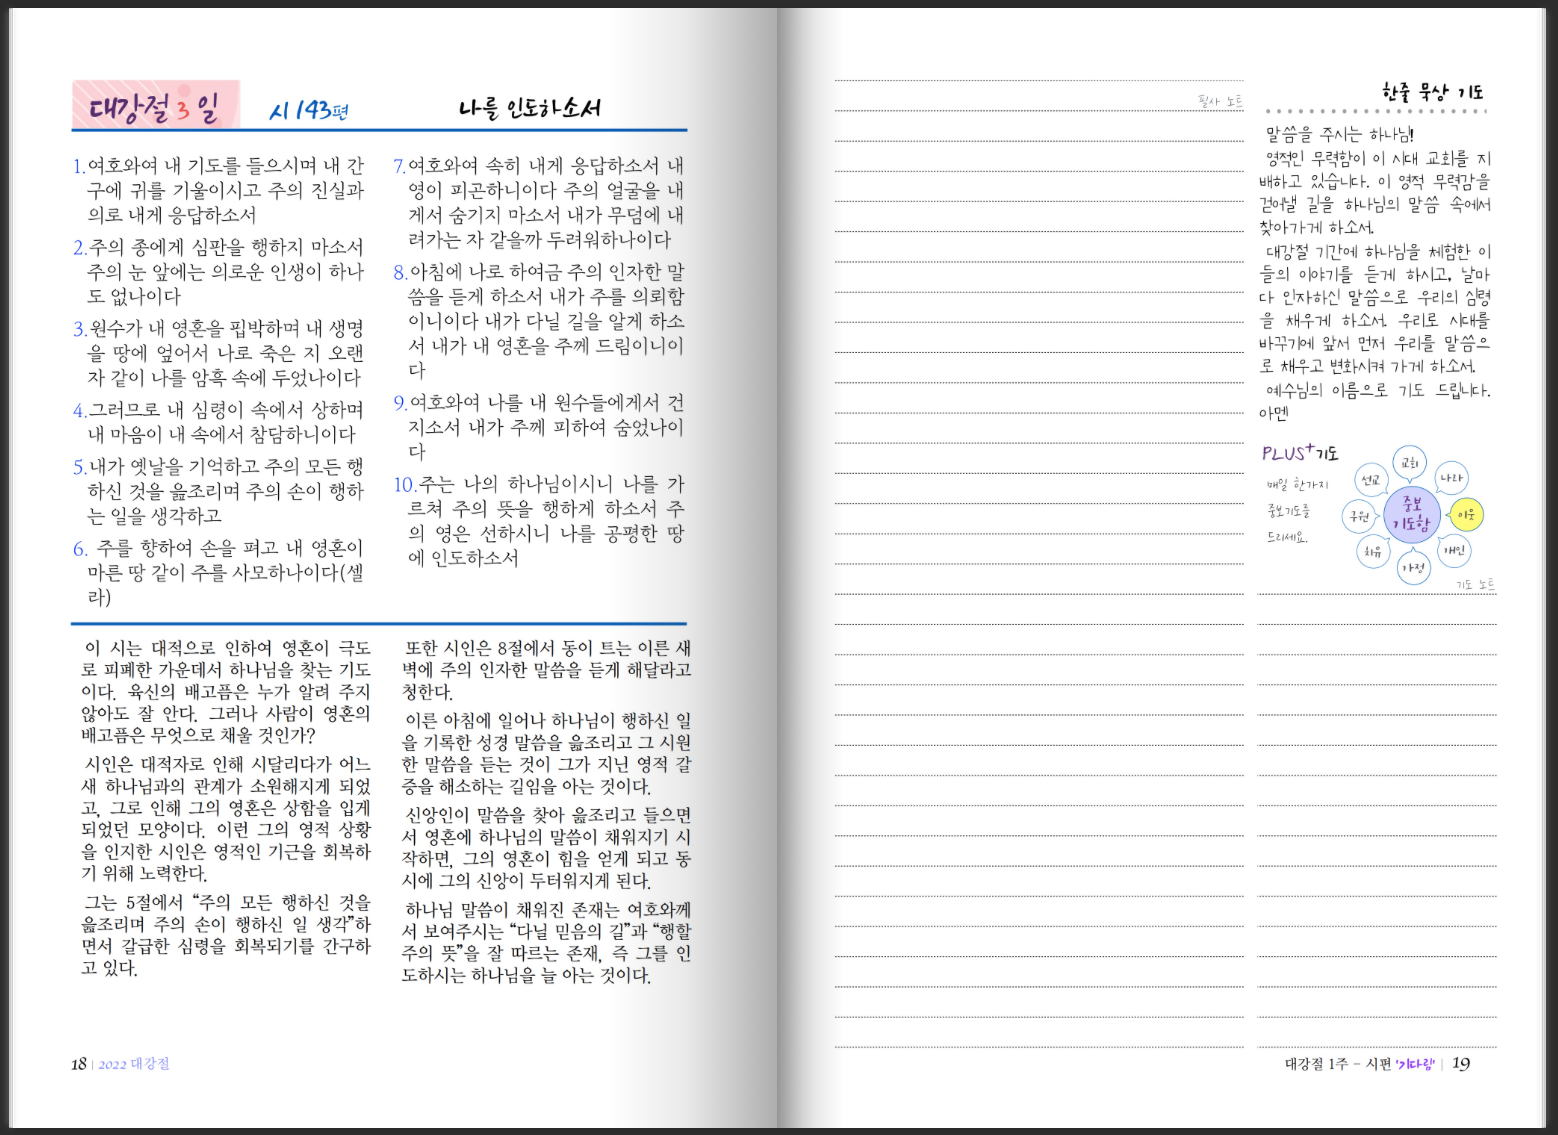 대강절 3일
시 143편
나를 인도하소서
1.여호와여 내 기도를 들으시며 내 간
구에 귀를 기울이시고 주의 진실과
의로 내게 응답하소서
2.주의 종에게 심판을 행하지 마소서
주의 눈 앞에는 의로운 인생이 하나
도 없나이다
3.원수가 내 영혼을 핍박하며 내 생명
을 땅에 엎어서 나로 죽은 지 오랜
자 같이 나를 암흑 속에 두었나이다
4.그러므로 내 심령이 속에서 상하며
내 마음이 내 속에서 참담하니이다
5.내가 옛날을 기억하고 주의 모든 행
하신 것을 읊조리며 주의 손이 행하
는 일을 생각하고
6. 주를 향하여 손을 펴고 내 영혼이
마른 땅 같이 주를 사모하나이다(셀
라)
7.여호와여 속히 내게 응답하소서 내
영이 피곤하니이다 주의 얼굴을 내
게서 숨기지 마소서 내가 무덤에 내
려가는 자 같을까 두려워하나이다
8.아침에 나로 하여금 주의 인자한 말
씀을 듣게 하소서 내가 주를 의뢰함
이니이다 내가 다닐 길을 알게 하소
서 내가 내 영혼을 주께 드림이니이
다
9.여호와여 나를 내 원수들에게서 건
지소서 내가 주께 피하여 숨었나이
다
10.주는 나의 하나님이시니 나를 가
르쳐 주의 뜻을 행하게 하소서 주
의 영은 선하시니 나를 공평한 땅
에 인도하소서
이 시는 대적으로 인하여 영혼이 극도
로 피폐한 가운데서 하나님을 찾는 기도
이다. 육신의 배고픔은 누가 알려 주지
않아도 잘 안다. 그러나 사람이 영혼의
배고픔은 무엇으로 채울 것인가?
시인은 대적자로 인해 시달리다가 어느
새 하나님과의 관계가 소원해지게 되었
고, 그로 인해 그의 영혼은 상함을 입게
되었던 모양이다. 이런 그의 영적 상황
을 인지한 시인은 영적인 기근을 회복하
기 위해 노력한다.
그는 5절에서 “주의 모든 행하신 것을
읊조리며 주의 손이 행하신 일 생각”하
면서 갈급한 심령을 회복되기를 간구하
고 있다.
또한 시인은 8절에서 동이 트는 이른 새
벽에 주의 인자한 말씀을 듣게 해달라고
청한다.
이른 아침에 일어나 하나님이 행하신 일
을 기록한 성경 말씀을 읊조리고 그 시원
한 말씀을 듣는 것이 그가 지닌 영적 갈
증을 해소하는 길임을 아는 것이다.
신앙인이 말씀을 찾아 읊조리고 들으면
서 영혼에 하나님의 말씀이 채워지기 시
작하면, 그의 영혼이 힘을 얻게 되고 동
시에 그의 신앙이 두터워지게 된다.
하나님 말씀이 채워진 존재는 여호와께
서 보여주시는 “다닐 믿음의 길”과 “행할
주의 뜻”을 잘 따르는 존재, 즉 그를 인
도하시는 하나님을 늘 아는 것이다.
18 | 2022 대강절
필사 노트
한줄 묵상 기도
말씀을 주시는 하나님!
영적인 무력함이 이 시대 교회를 지
배하고 있습니다. 이 영적 무력감을
걷어낼 길을 하나님의 말씀 속에서
찾아가게 하소서.
대강절 기간에 하나님을 체험한 이
들의 이야기를 듣게 하시고, 날마
다 인자하신 말씀으로 우리의 심령
을 채우게 하소서. 우리로 시대를
바꾸기에 앞서 먼저 우리를 말씀으
로 채우고 변화시켜 가게 하소서.
예수님의 이름으로 기도 드립니다.
아멘
PLUS+기도
매일 한가지
중보기도를
드리세요.
교회
선교
나라
구원
중보
기도함
이웃
치유
개인
가정
기도 노트
대강절 1주 - 시편 '기다림' | 19